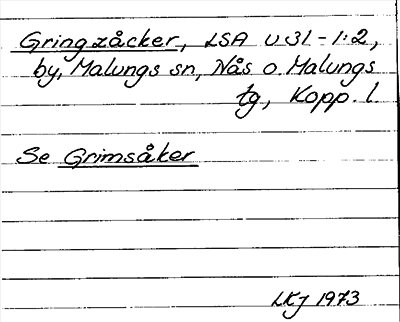 Gringzåcker, LSA U 31-1:2,
by, Malungs sn, Nås o. Malungs
tg, Kopp. l.
Se Grimsåker
LKJ 1973